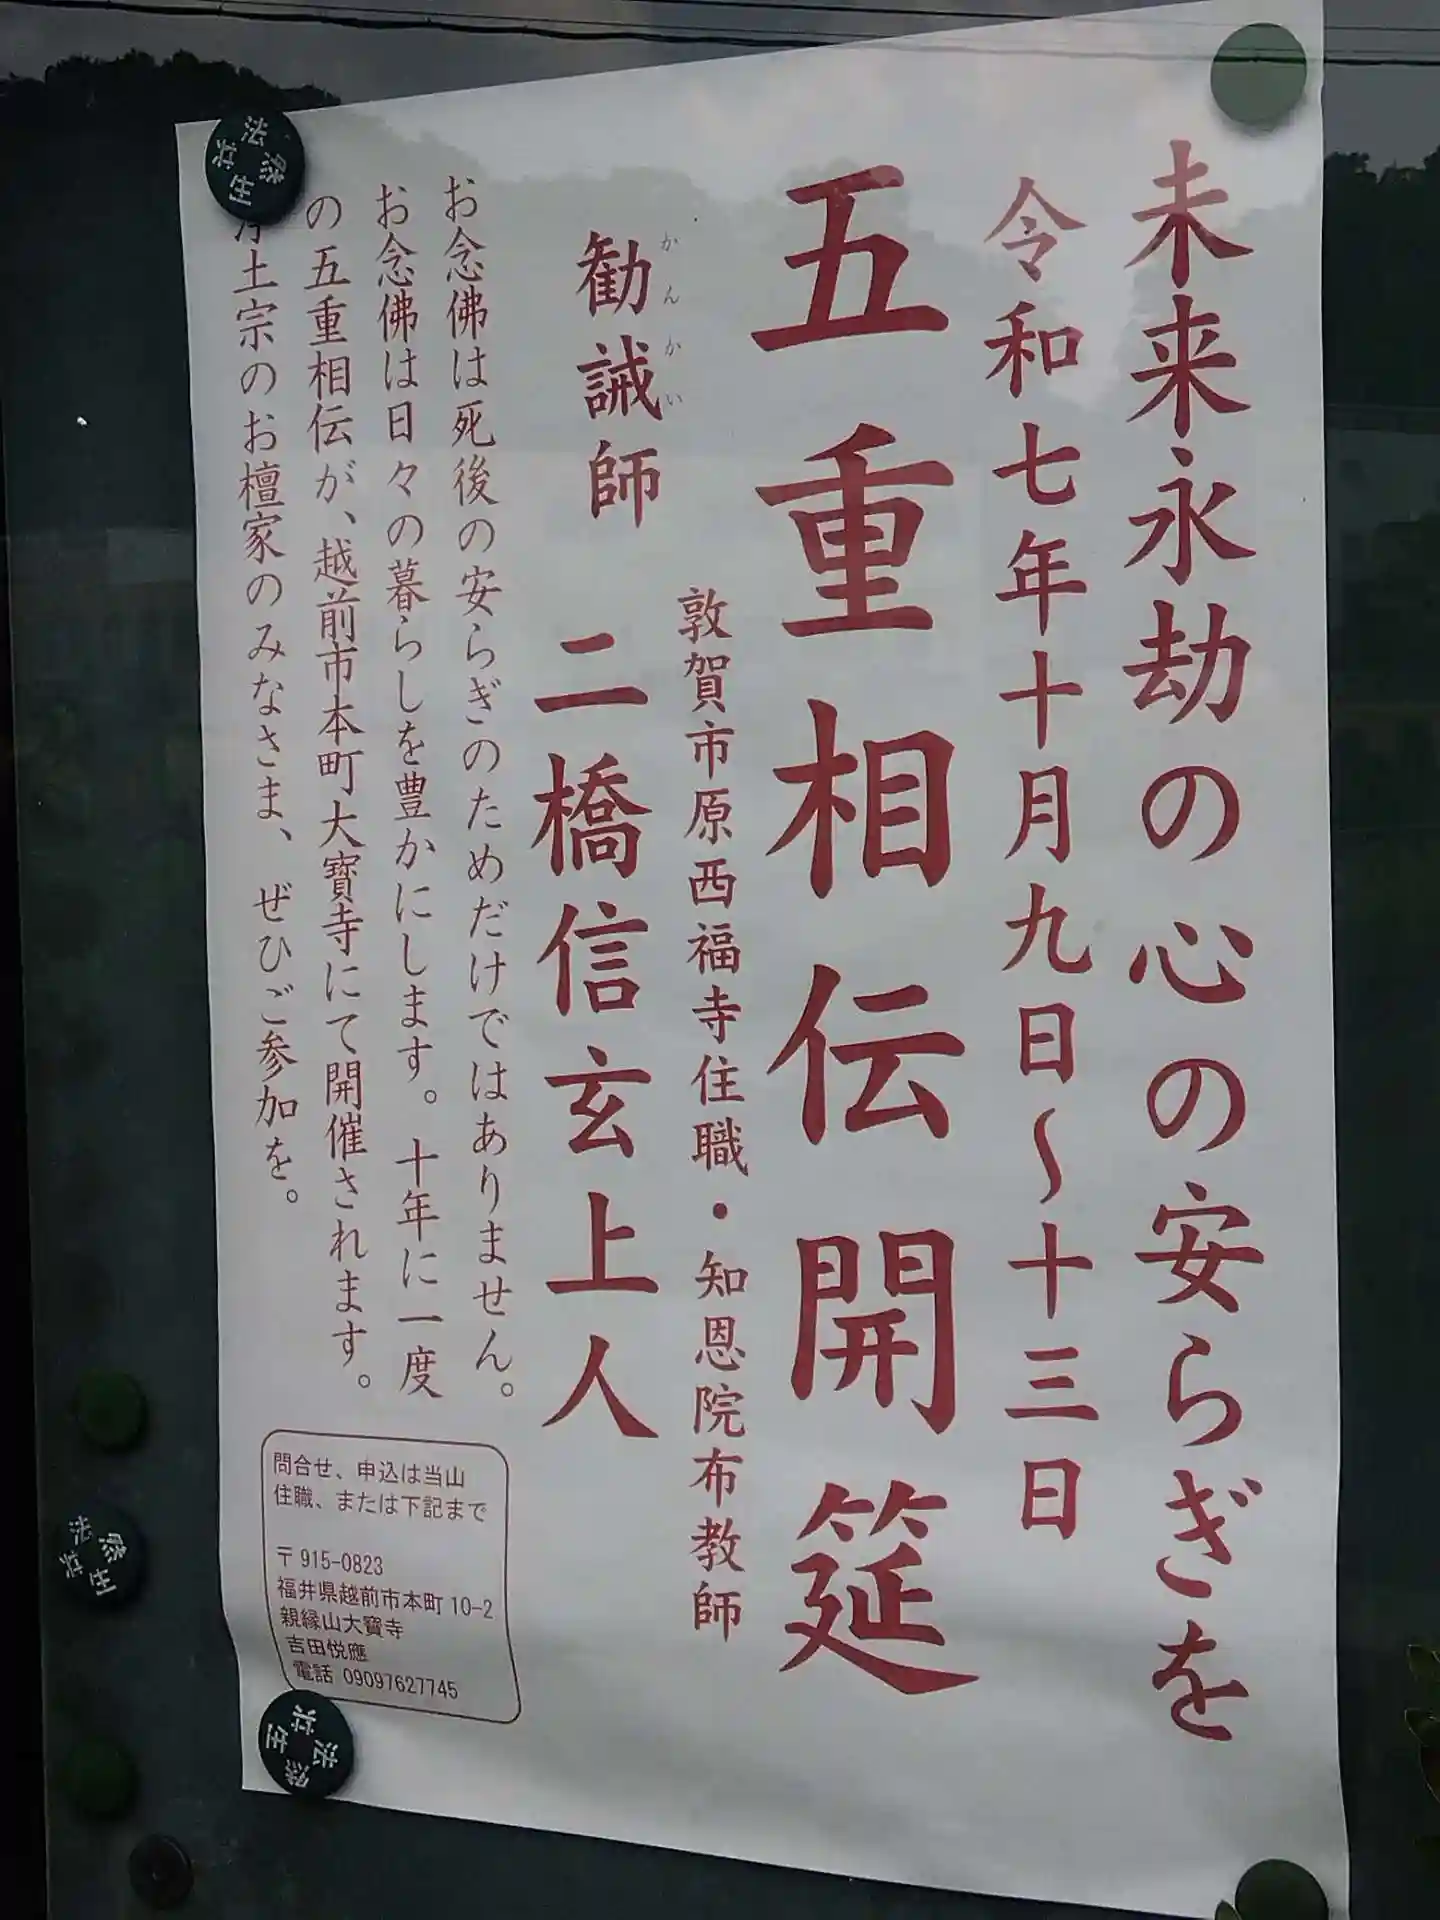 未来永劫の心の安らぎを
令和七年十月九日〜十三日
五重相伝開筵
敦賀市原西福寺住職・知恩院布教師
かんかい
勧誡師 二橋信玄上人
お念佛は死後の安らぎのためだけではありません。
お念佛は日々の暮らしを豊かにします。十年に一度
の五重相伝が、越前市本町大寶寺にて開催されます。
浄土宗のお檀家のみなさま、ぜひご参加を。
問合せ、申込は当山
住職、または下記まで
〒915-0823
福井県越前市本町10-2
親縁山大寶寺
吉田悦應
電話 09097627745
法然共生
法然共生
法然共生